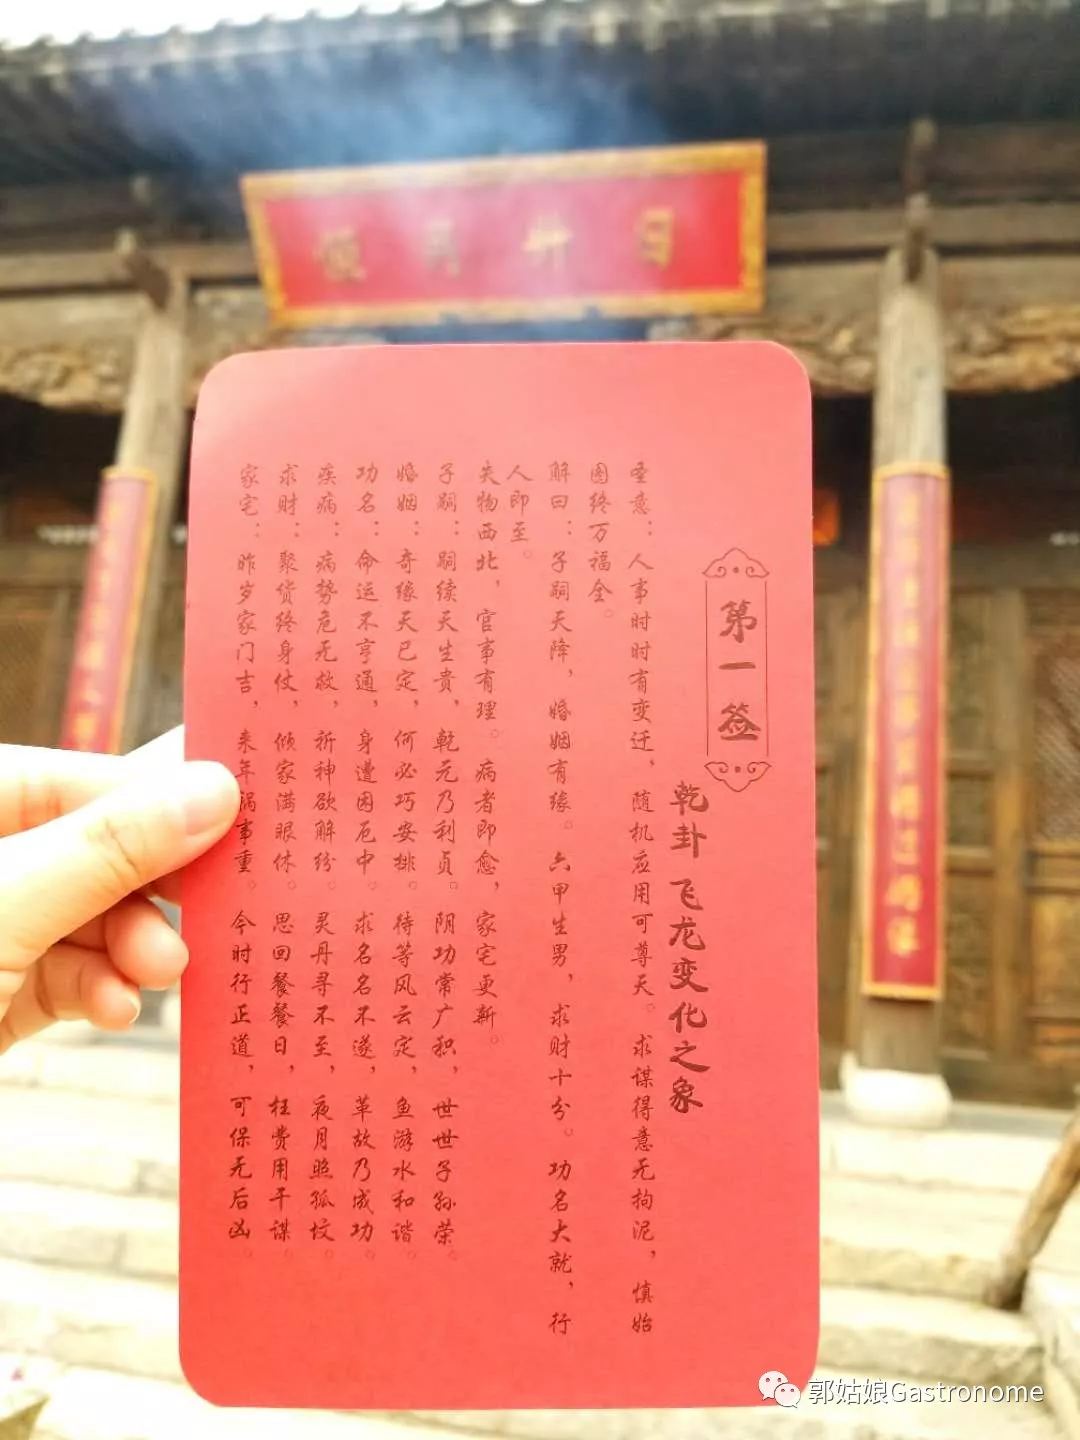 第一签
乾卦 飞龙变化之象
圣意：人事时时有变迁，随机应用可尊天。求谋得意无拘泥，慎始
图终万福全。
解曰：子嗣天降，婚姻有缘。六甲生男，求财十分。功名大就，行
人即至。
失物西北，官事有理。病者即愈，家宅更新。
子嗣：嗣续天生贵，乾元乃利贞。阴功常广积，世世子孙荣。
婚姻：奇缘天已定，何必巧安排。待等风云定，鱼游水和谐。
功名：命运不亨通，身遭困厄中。求名名不遂，革故乃成功。
疾病：病势危无救，祈神欲解纷。灵丹寻不至，夜月照孤坟。
求财：聚货终身仗，倾家满眼休。思回餐餐日，枉费用干谋。
家宅：昨岁家门吉，来年祸事重。今时行正道，可保无后凶。
郭姑娘Gastronome